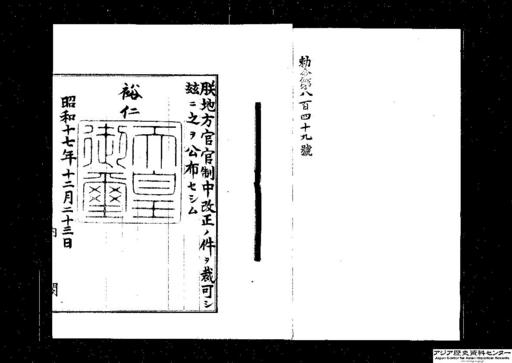 勅令第八百四十九號
朕地方官官制中改正ノ件ヲ裁可シ
玆ニ之ヲ公布セシム
裕仁
天皇
御璽
昭和十七年十二月二十三日
内
閣
アジア歴史資料センター
Japan Center for Asian Historical Records